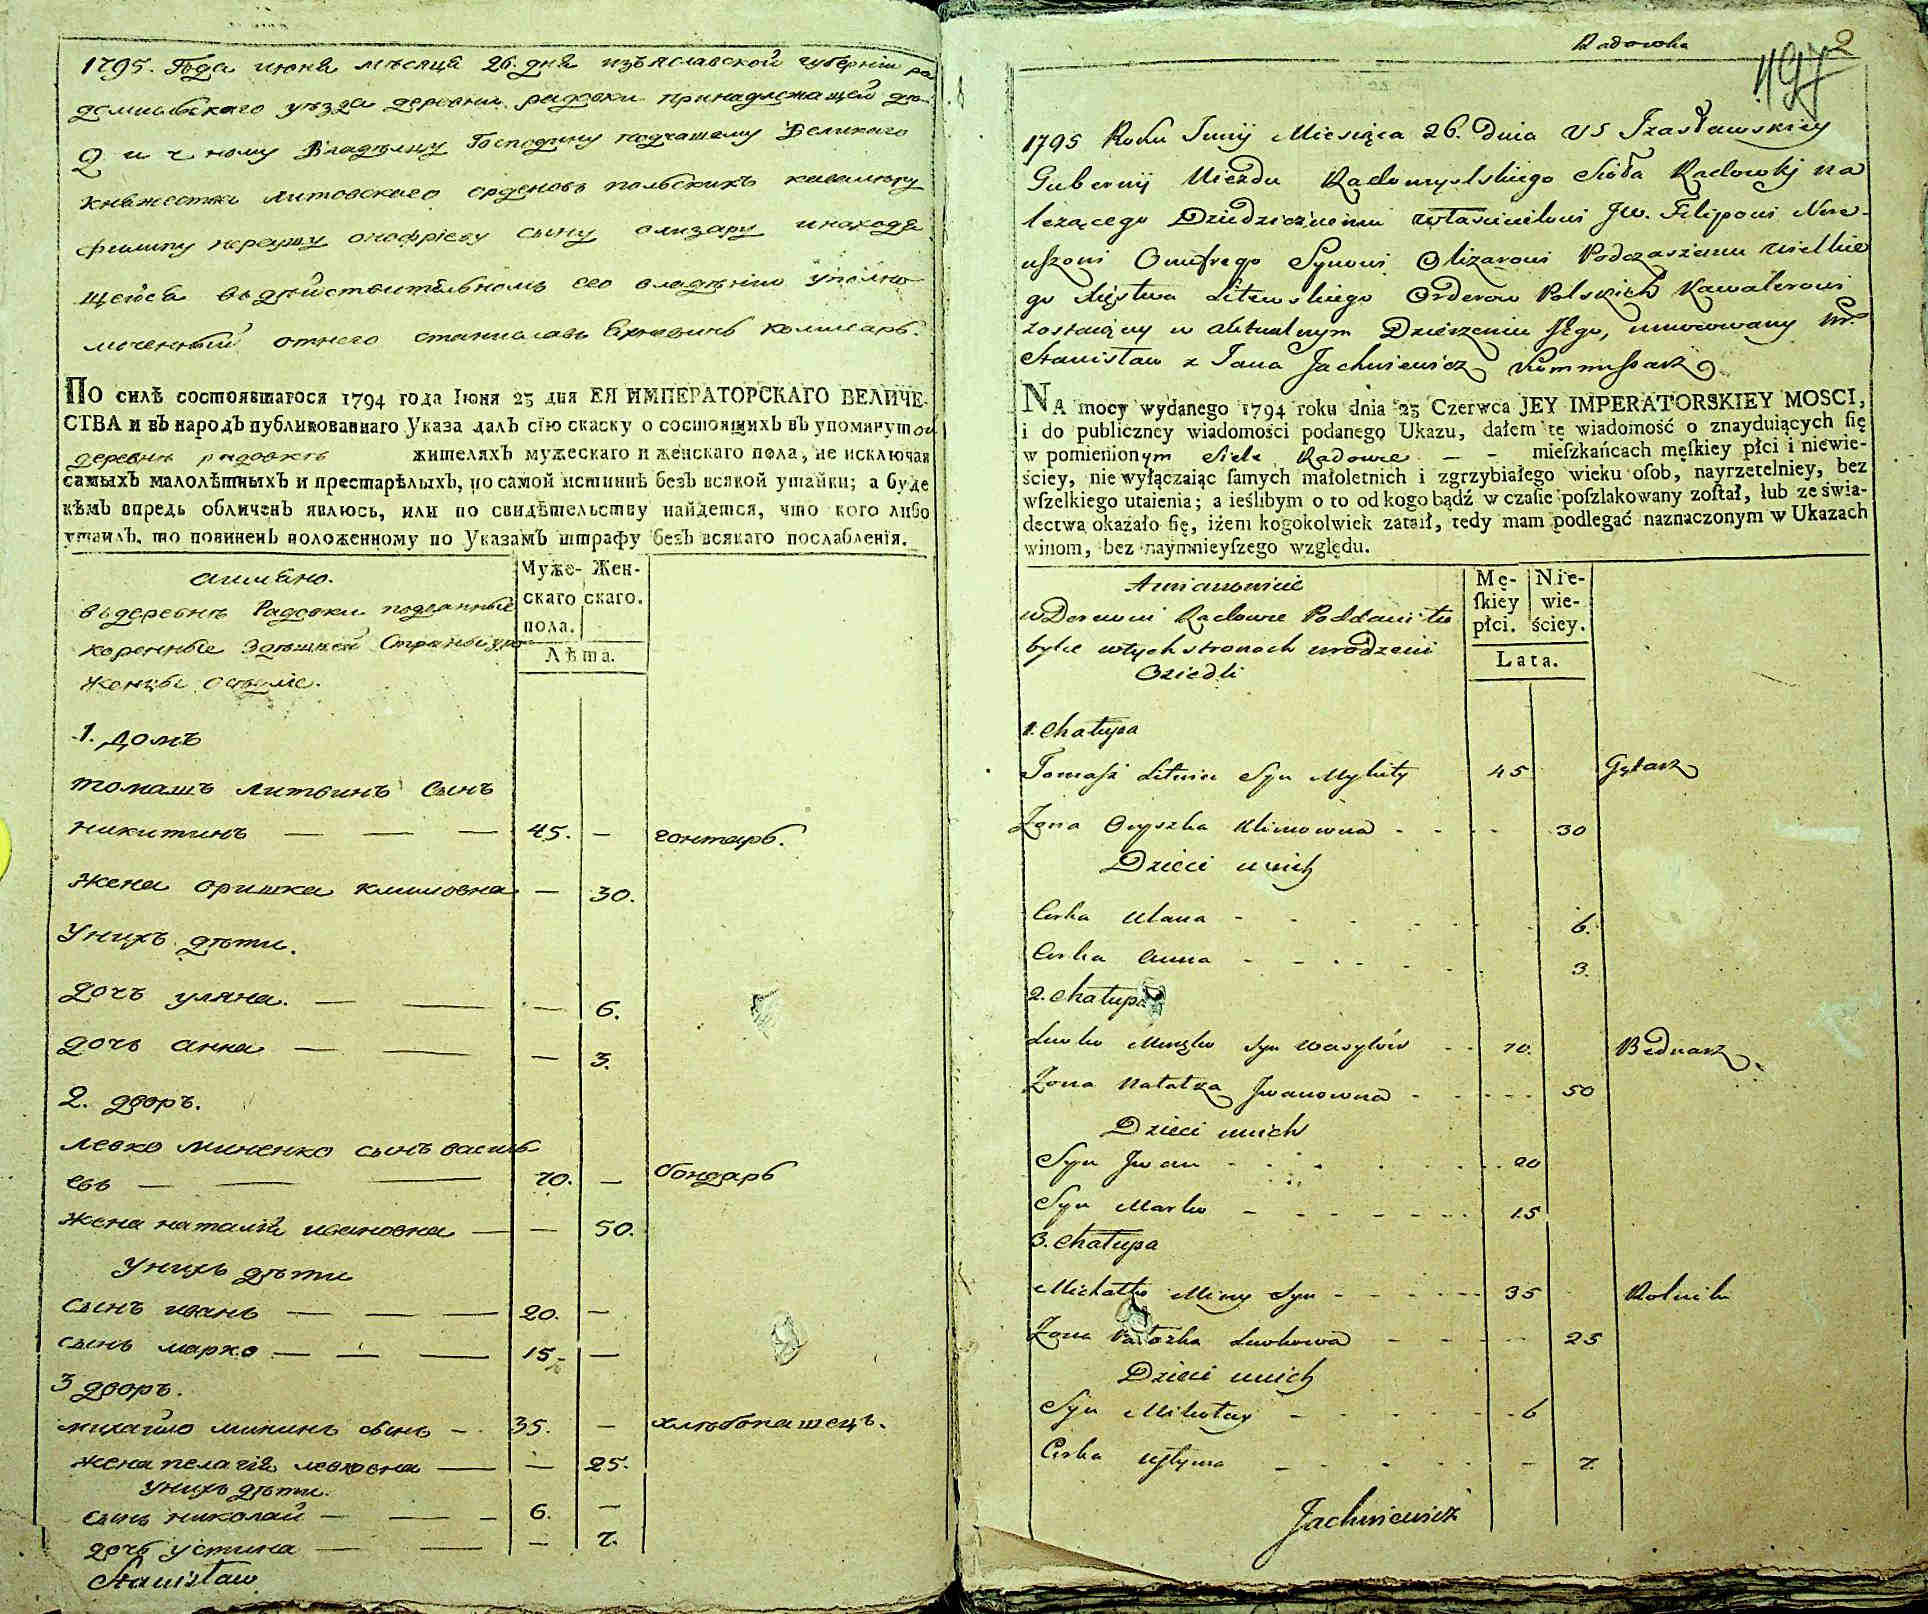 1795. Года июня мѣсяца 26. дня изъяславской губернїи ра
домысльского уѣзда деревни радовки принадлежащей дѣ
дичному Владѣлцу Господину подчашему Великаго
княжества литовскаго орденовъ польскихъ кавалеру
филипу нереушу онофрїеву сыну олизару инаходя
щейся въдѣйствительномъ его владѣнїи уполно
моченный отнего станиславъ Яхневичъ комисаръ.
ПО силѣ состоявшагося 1794 года Іюня 23 дня ЕЯ ИМПЕРАТОРСКАГО ВЕЛИЧЕ-
СТВА и въ народъ публикованнаго Указа далъ сїю скаску о состоящихъ въ упомянутой
деревнѣ радовкѣ жителяхъ мужескаго и женскаго пола, не исключая
самыхъ малолѣтныхъ и престарѣлыхъ, по самой истиннѣ безъ всякой утайки; а буде
кѣмъ впредь обличенъ явлюсь, или по свидѣтельству найдется, что кого либо
утаилъ, то повиненъ положенному по Указамъ штрафу безъ всякаго послабленїя.
Муже- Жен-
скаго скаго.
пола.
Лѣта.
имѣно.
въдеревнѣ Радовки подданные
коренные Здѣшней Страны уро
женцы оседлїе.
1. домъ
томашъ литвинъ Сынъ
никитинъ — — — 45. — гонтаръ.
жена оришка климовна — 30.
Унихъ дѣти.
дочъ уляна. — — — 6.
дочъ анна — — — 3.
2. дворъ.
левко миненко сынъ василь
евъ — — — 70. — бондаръ
жена наталїя ивановна — — 50.
Унихъ дѣти
сынъ иванъ — — — 20. —
сынъ марко — — — 15. —
3 дворъ.
михайло мининъ сынъ — 35. — хлѣбопашецъ.
жена пелагїя левковна — — 25.
Унихъ дѣти.
сынъ николай — — — 6. —
дочъ устина — — — 7.
Stanisław
Radowka
2
497
1795 Roku Junij Miesiąca 26. Dnia VS Izasławskiey
Gubernij Uiezdu Radomyslskiego Sioła Radowkj na
leżącego Dziedzicznemu właścicielowi JW. Filipowi Nere-
uszowi Onufrego Synowi Olizarowi Podczaszemu wielkie
go Xięstwa Litewskiego Orderow Polskich Kawalerowi
zostaiącey w aktualnym Dzierżeniu Jego, umocowany
Stanisław z Jana Jachniewicz Kommissarz
NA mocy wydanego 1794 roku dnia 23 Czerwca JEY IMPERATORSKIEY MOSCI,
i do publiczney wiadomości podanego Ukazu, dałem tę wiadomość o znayduiących ſię
w pomienionym Siele Radowce — - mieſzkańcach męſkiey płci i niewie-
ściey, nie wyłączaiąc ſamych małoletnich i zgrzybiałego wieku oſob, nayrzetelniey, bez
wſzelkiego utaienia; a ieślibym o to od kogo bądź w czaſie poſzlakowany zoſtał, lub ze świa-
dectwa okazało ſię, iżem kogokolwiek zataił, tedy mam podlegać naznaczonym w Ukazach
winom, bez naymnieyſzego względu.
Mę- Nie-
ſkiey wie-
płci. ściey.
Lata.
Amianowicie
w Derewni Radowce Poddani tu
bylce wtych stronach urodzeni
Osiedli
1. Chałupa
Tomasz Litwin Syn Mykity 45 Gętarz
Zona Oryszka Klimowna - - - 30
Dzieci unich
Corka Ulana - - - 6.
Corka Anna - - - 3.
2. Chałupa
Lewko Minęko Syn Wasylów - - 70. Bednarz
Zona Natałza Jwanowna - - - 50
Dzieci unich
Syn Jwan - - - 20
Syn Marko - - - 15
3. Chałupa
Michałko Miny Syn - - - 35 Rolnik
Zona Pałazka Lewkowa - - - 25
Dzieci unich
Syn Mikołay - - - 6
Corka Ustyma - - - 7.
Jachniewicz